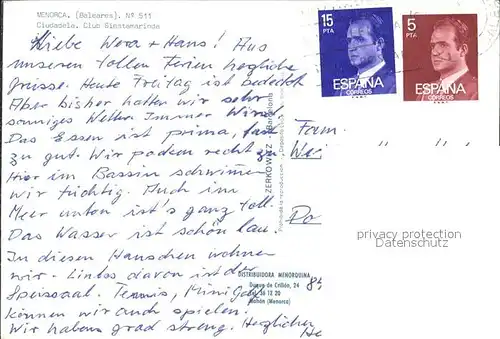 MENORCA, (Baleares). Nº 511
Ciudadela. Club Ginstamarinda
Liebe Wera + Hans! Aus
unseren tollen Ferien herzliche
Grüsse. Heute Freitag ist bedeckt
Aber bisher hatten wir sehr
sonniges Wetter. Immer Wind.
Das Essen ist prima, fast
zu gut. Wir packen recht zu.
Hier im Bassin schwimmen
wir tüchtig. Auch im
Meer unten ist's ganz toll.
Das Wasser ist schön lau.
In diesen Häuschen wohnen
wir. Links davon ist der
Speisesaal. Tennis, Mini Golf
können wir auch spielen.
Wir habens grad streng. Herzlichen
ZERKOWITZ
15
PTA
ESPAÑA
CORREOS
5
PTA
ESPAÑA
CORREOS
Fam.
privacy protection
Datenschutz
DISTRIBUIDORA MENORQUINA
Duque de Crillón, 24
Tel. 36 12 20
Mahón (Menorca)